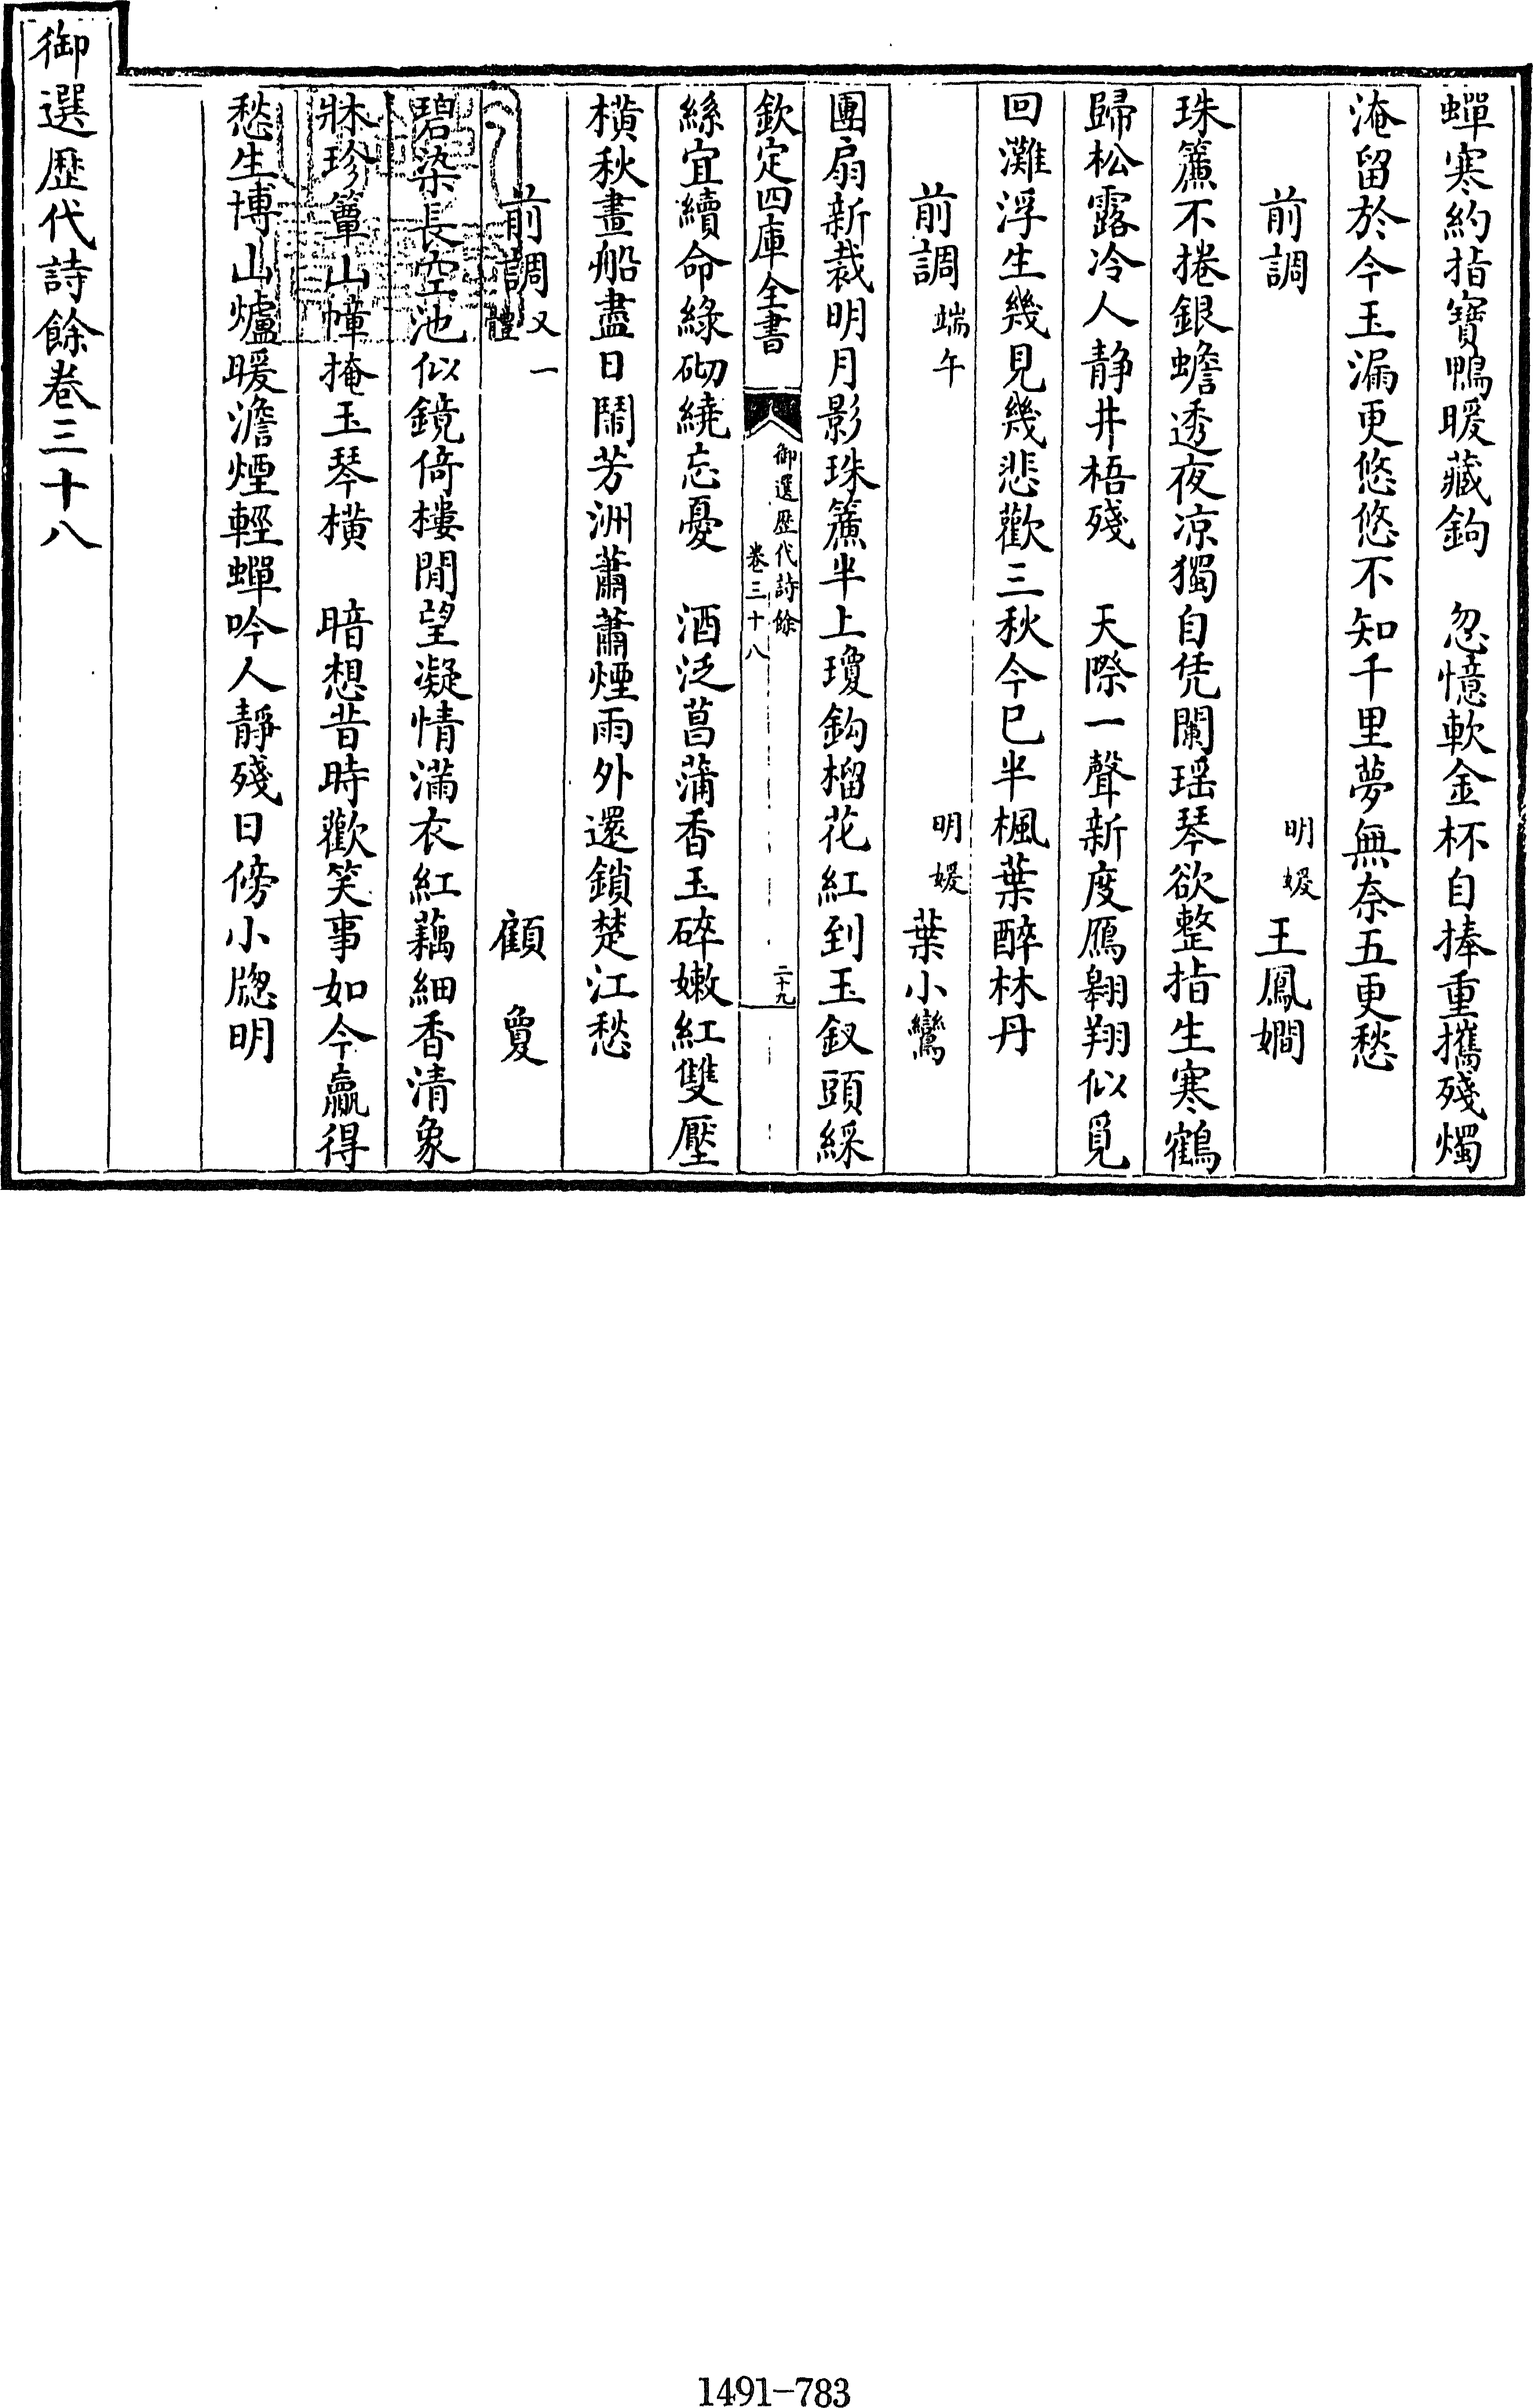 蟬寒約指寶鴨暖藏鉤　忽憶軟金杯自捧重攜殘燭
淹留於今玉漏更悠悠不知千里夢無奈五更愁
前調　明媛王鳳嫻
珠簾不捲銀蟾透夜凉獨自凭闌瑶琴欲整指生寒鶴
歸松露冷人静井梧殘　天際一聲新度鴈翱翔似覓
回灘浮生幾見幾悲歡三秋今已半楓葉醉林丹
前調端午　明媛葉小鸞
團扇新裁明月影珠簾半上瓊鈎榴花紅到玉釵頭綵
欽定四庫全書　御選歷代詩餘卷三十八　二十九
絲宜續命綠砌繞忘憂　酒泛菖蒲香玉碎嫩紅雙壓
橫秋畫船盡日鬧芳洲蕭蕭煙雨外還鎖楚江愁
前調又一體　顧夐
碧染長空池似鏡倚樓閒望凝情滿衣紅藕細香清象
牀珍簟山幛掩玉琴橫　暗想昔時歡笑事如今贏得
愁生博山爐暖澹煙輕蟬吟人靜殘日傍小牕明
御選歷代詩餘卷三十八
1491-783